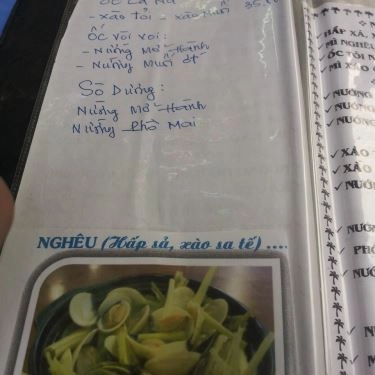 ỐC CÀ NA
- Xào Tỏi - Xào Muối 35.
ỐC VÒI VOI:
- Nướng Mỡ Hành
- Nướng Muối ớt
SÒ Dương:
Nướng Mỡ Hành
Nướng Phô Mai
NGHÊU (Hấp sả, xào sa tế) ....
HẤP XẢ,
MÌ NGHÊU
ỐC TỎI N
MÌ XÀO
NƯỚNG
NƯỚNG
NƯỚNG
XÀO
XÀO
NƯỚ
NƯỚN
PH
NƯỚ
N
M